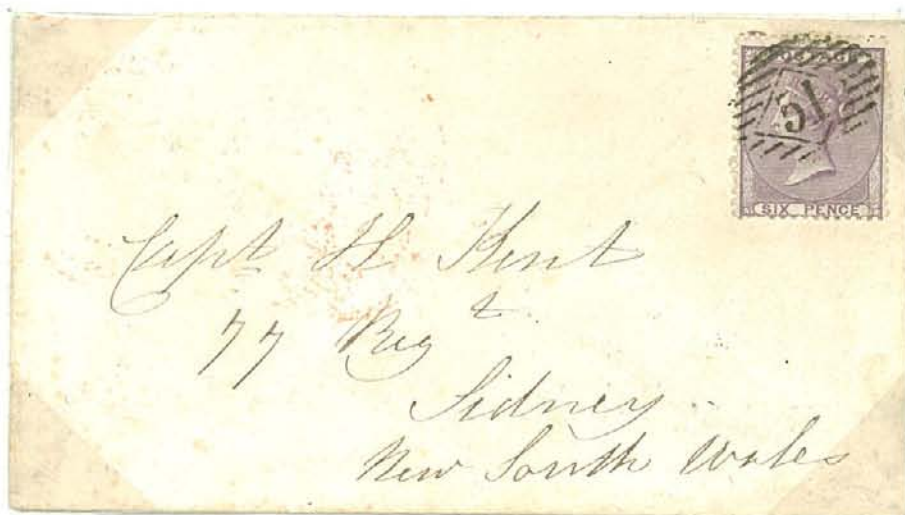 POSTAGE
51
SIX PENCE
Capt H Kent
77 Regt.
Sidney
New South Wales